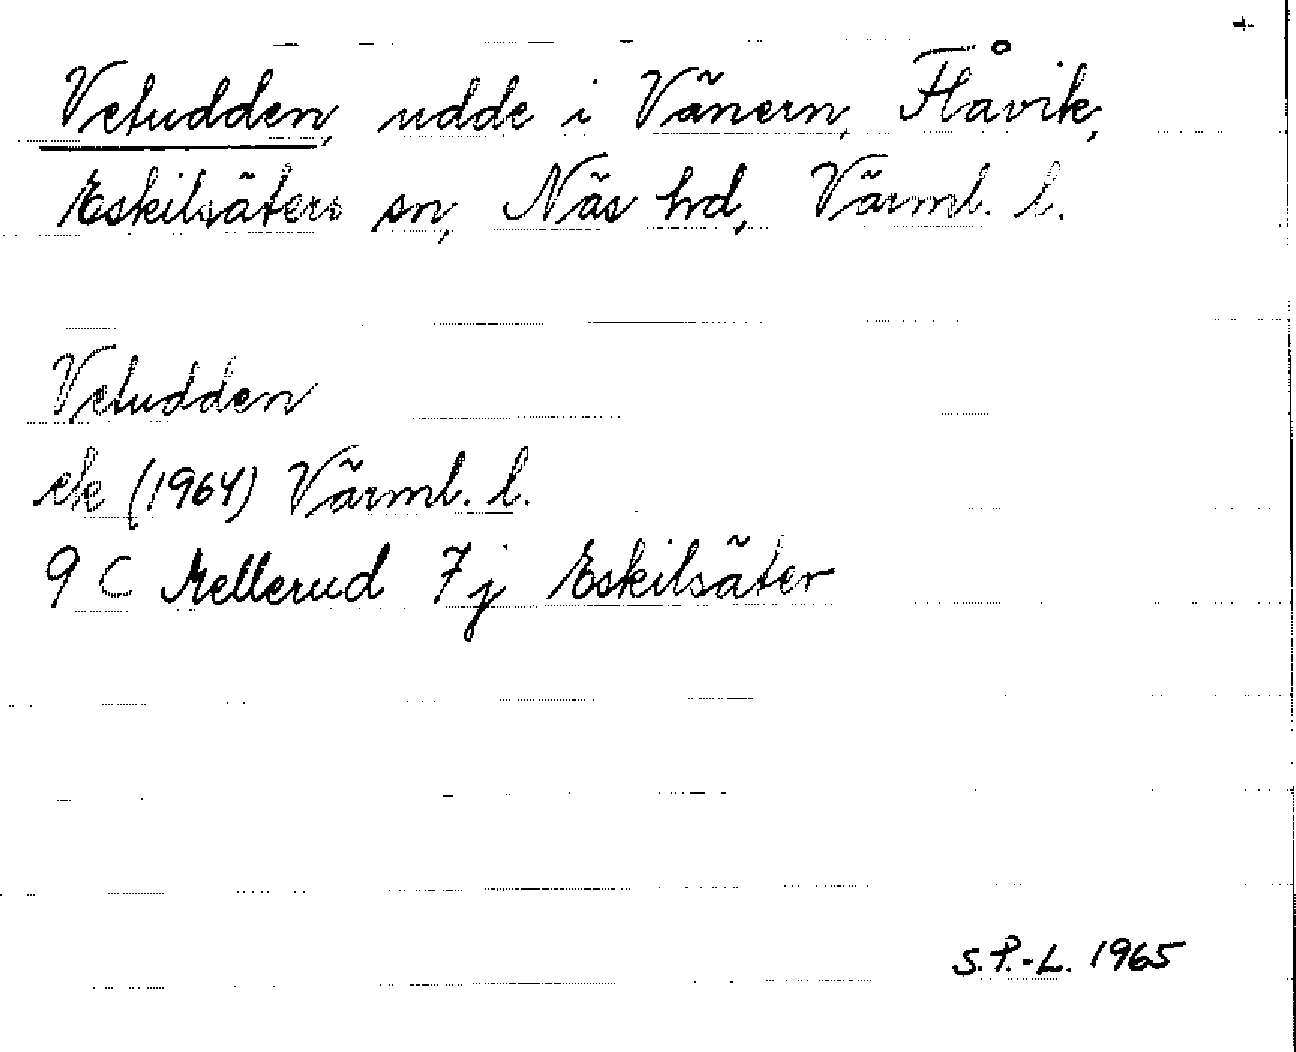 +
Vetudden, udde i Vänern, Flåvik,
Eskilsäters sn, Näs hrd, Värml. l.
Vetudden
ek (1964) Värml. l.
9 C Mellerud 7 j Eskilsäter
S.P.-L. 1965